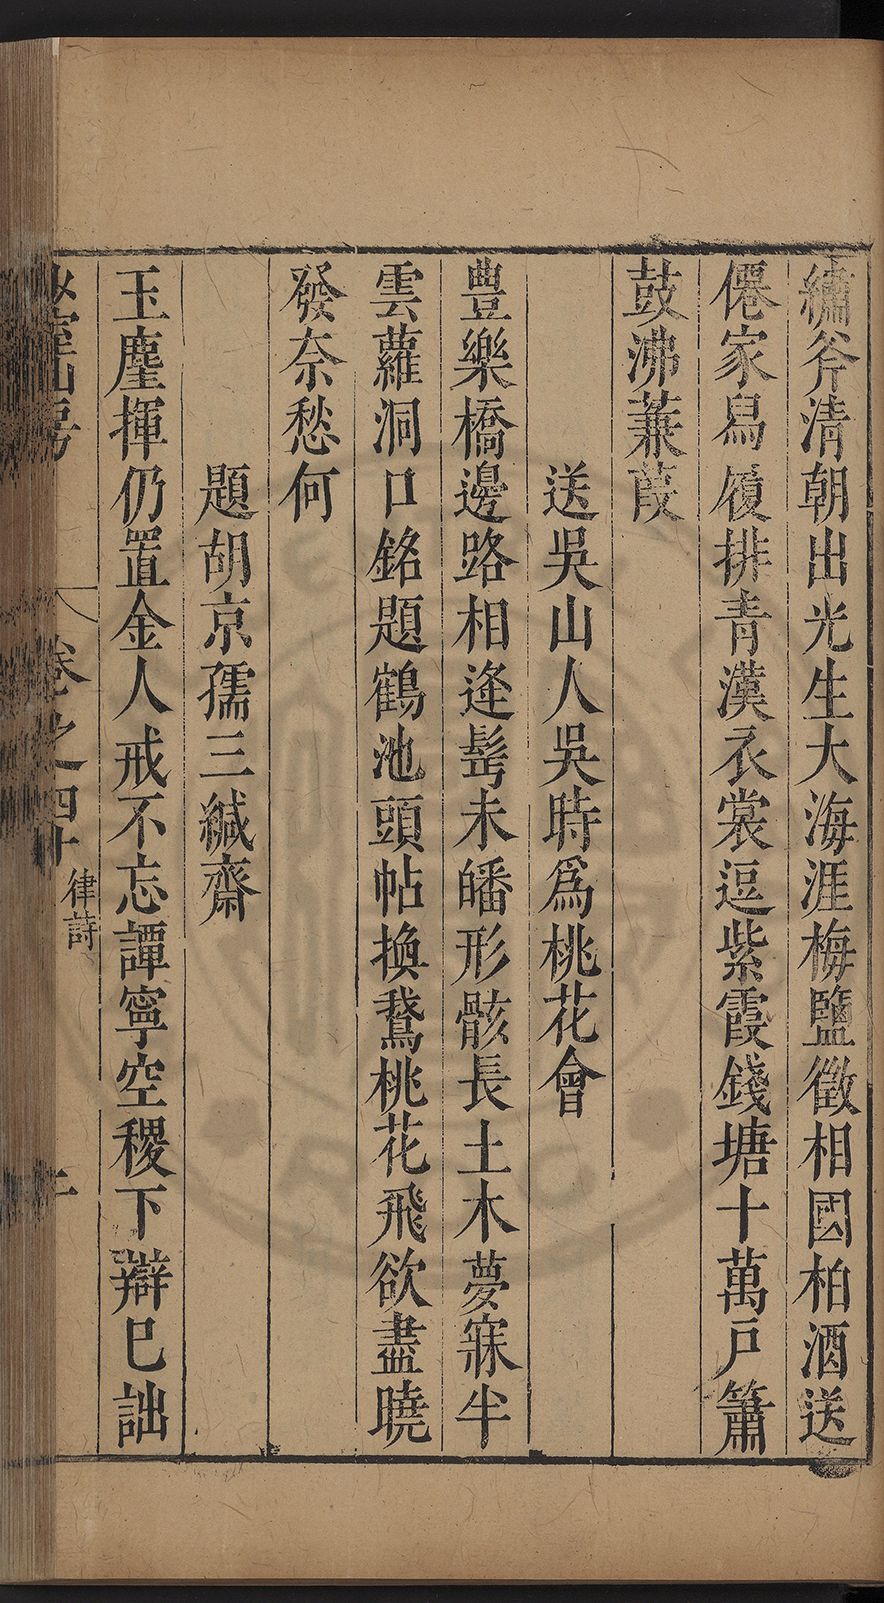 繡斧清朝出光生大海涯梅鹽徵相國柏酒送
僊家舄履排青漢衣裳逗紫霞錢塘十萬戸簫
鼓沸蒹葭
送吳山人吳時爲桃花會
豊樂橋邊路相逢髩未皤形骸長土木夢寐半
雲蘿洞口銘題鶴池頭帖換鵞桃花飛欲盡曉
發奈愁何
題胡京孺三緘齋
玉麈揮仍置金人戒不忘譚寧空稷下辯巳詘
山房
卷之四十
律詩